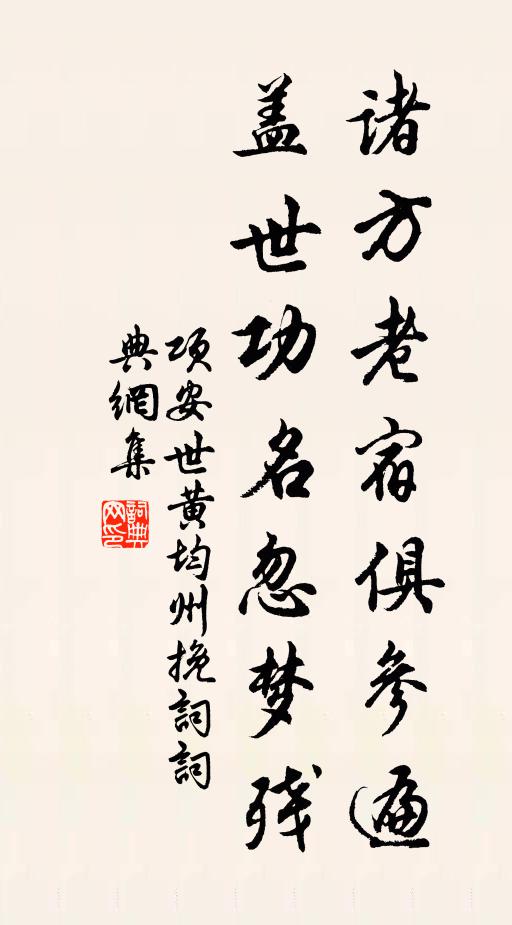 诸方老宿俱参遍
盖世功名忽梦残
项安世黄均州挽詞詞
典網集
詞典
网印